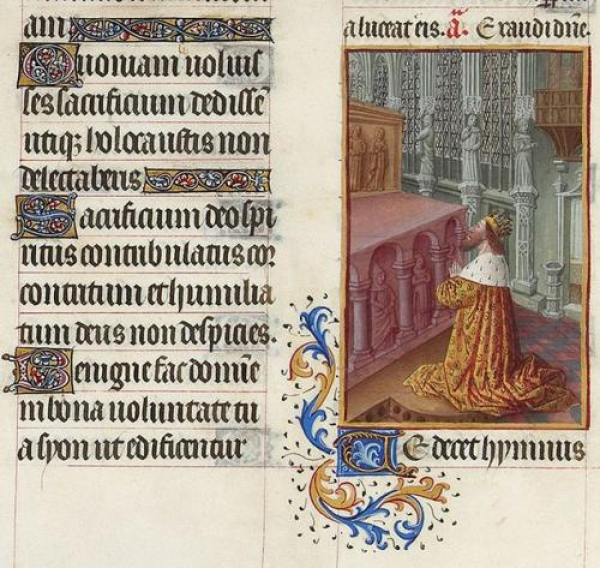 am
Quoniam uoluis
ses sacrificium dedissē
utiqꝫ holocaustis non
delectaberis
Sacrificium deo spi
ritus contribulatus cor
contritum et humilia
tum deus non despicies.
Benigne fac domīe
in bona uoluntate tu
a syon ut edificentur
a luceat eis. a. Exaudi dn̄e.
Te decet hymnus